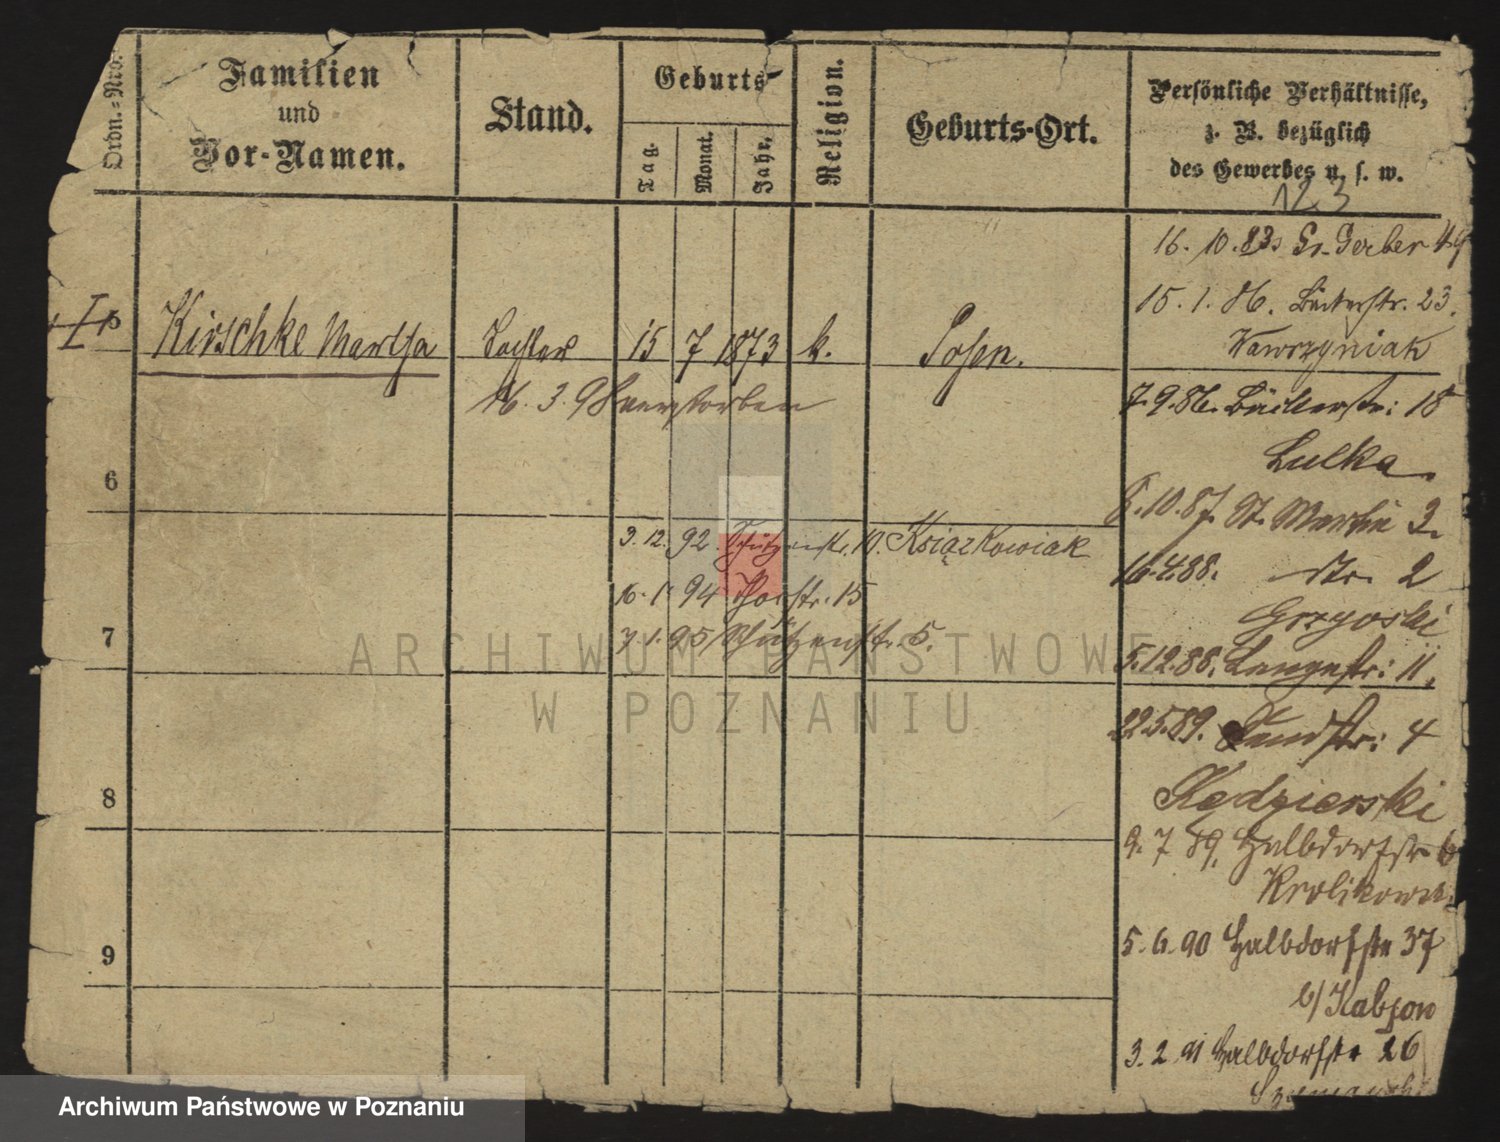 Ordn.-Nro.
Familien
und
Vor-Namen.
Stand.
Geburts-
Tag.
Monat.
Jahr.
Religion.
Geburts-Ort.
Persönliche Verhältnisse,
z. B. bezüglich
des Gewerbes u. s. w.
123
16. 10. 83. Gr. Gerber 49
15. 1. 86. Bäckerstr. 23.
Wawrzyniak
I 5 Kirschke Martha Tochter 15 7 1873 k. Posen.
16. 3. 98 verstorben
7. 9. 86. Bäckerstr: 18
Lulka
6
6. 10. 87. St. Martin 3.
3. 12. 92. Schützenstr. 10. Książkowiak
16. 4. 88. Str. 2
16. 1. 94 Thorstr. 15
Grzyoski
7. 1. 95 Schützenstr. 5.
7
5. 12. 88. Langestr: 11.
22. 5. 89. Sandstr: 4
8
Kędzierski
9. 7. 89. Halbdorfstr 6
Krolikows
5. 6. 90 Halbdorfstr 37
9
b/ Kabzow
3. 2. 91 Halbdorfstr 26
Szymanski
ARCHIWUM PAŃSTWOWE
W POZNANIU
Archiwum Państwowe w Poznaniu